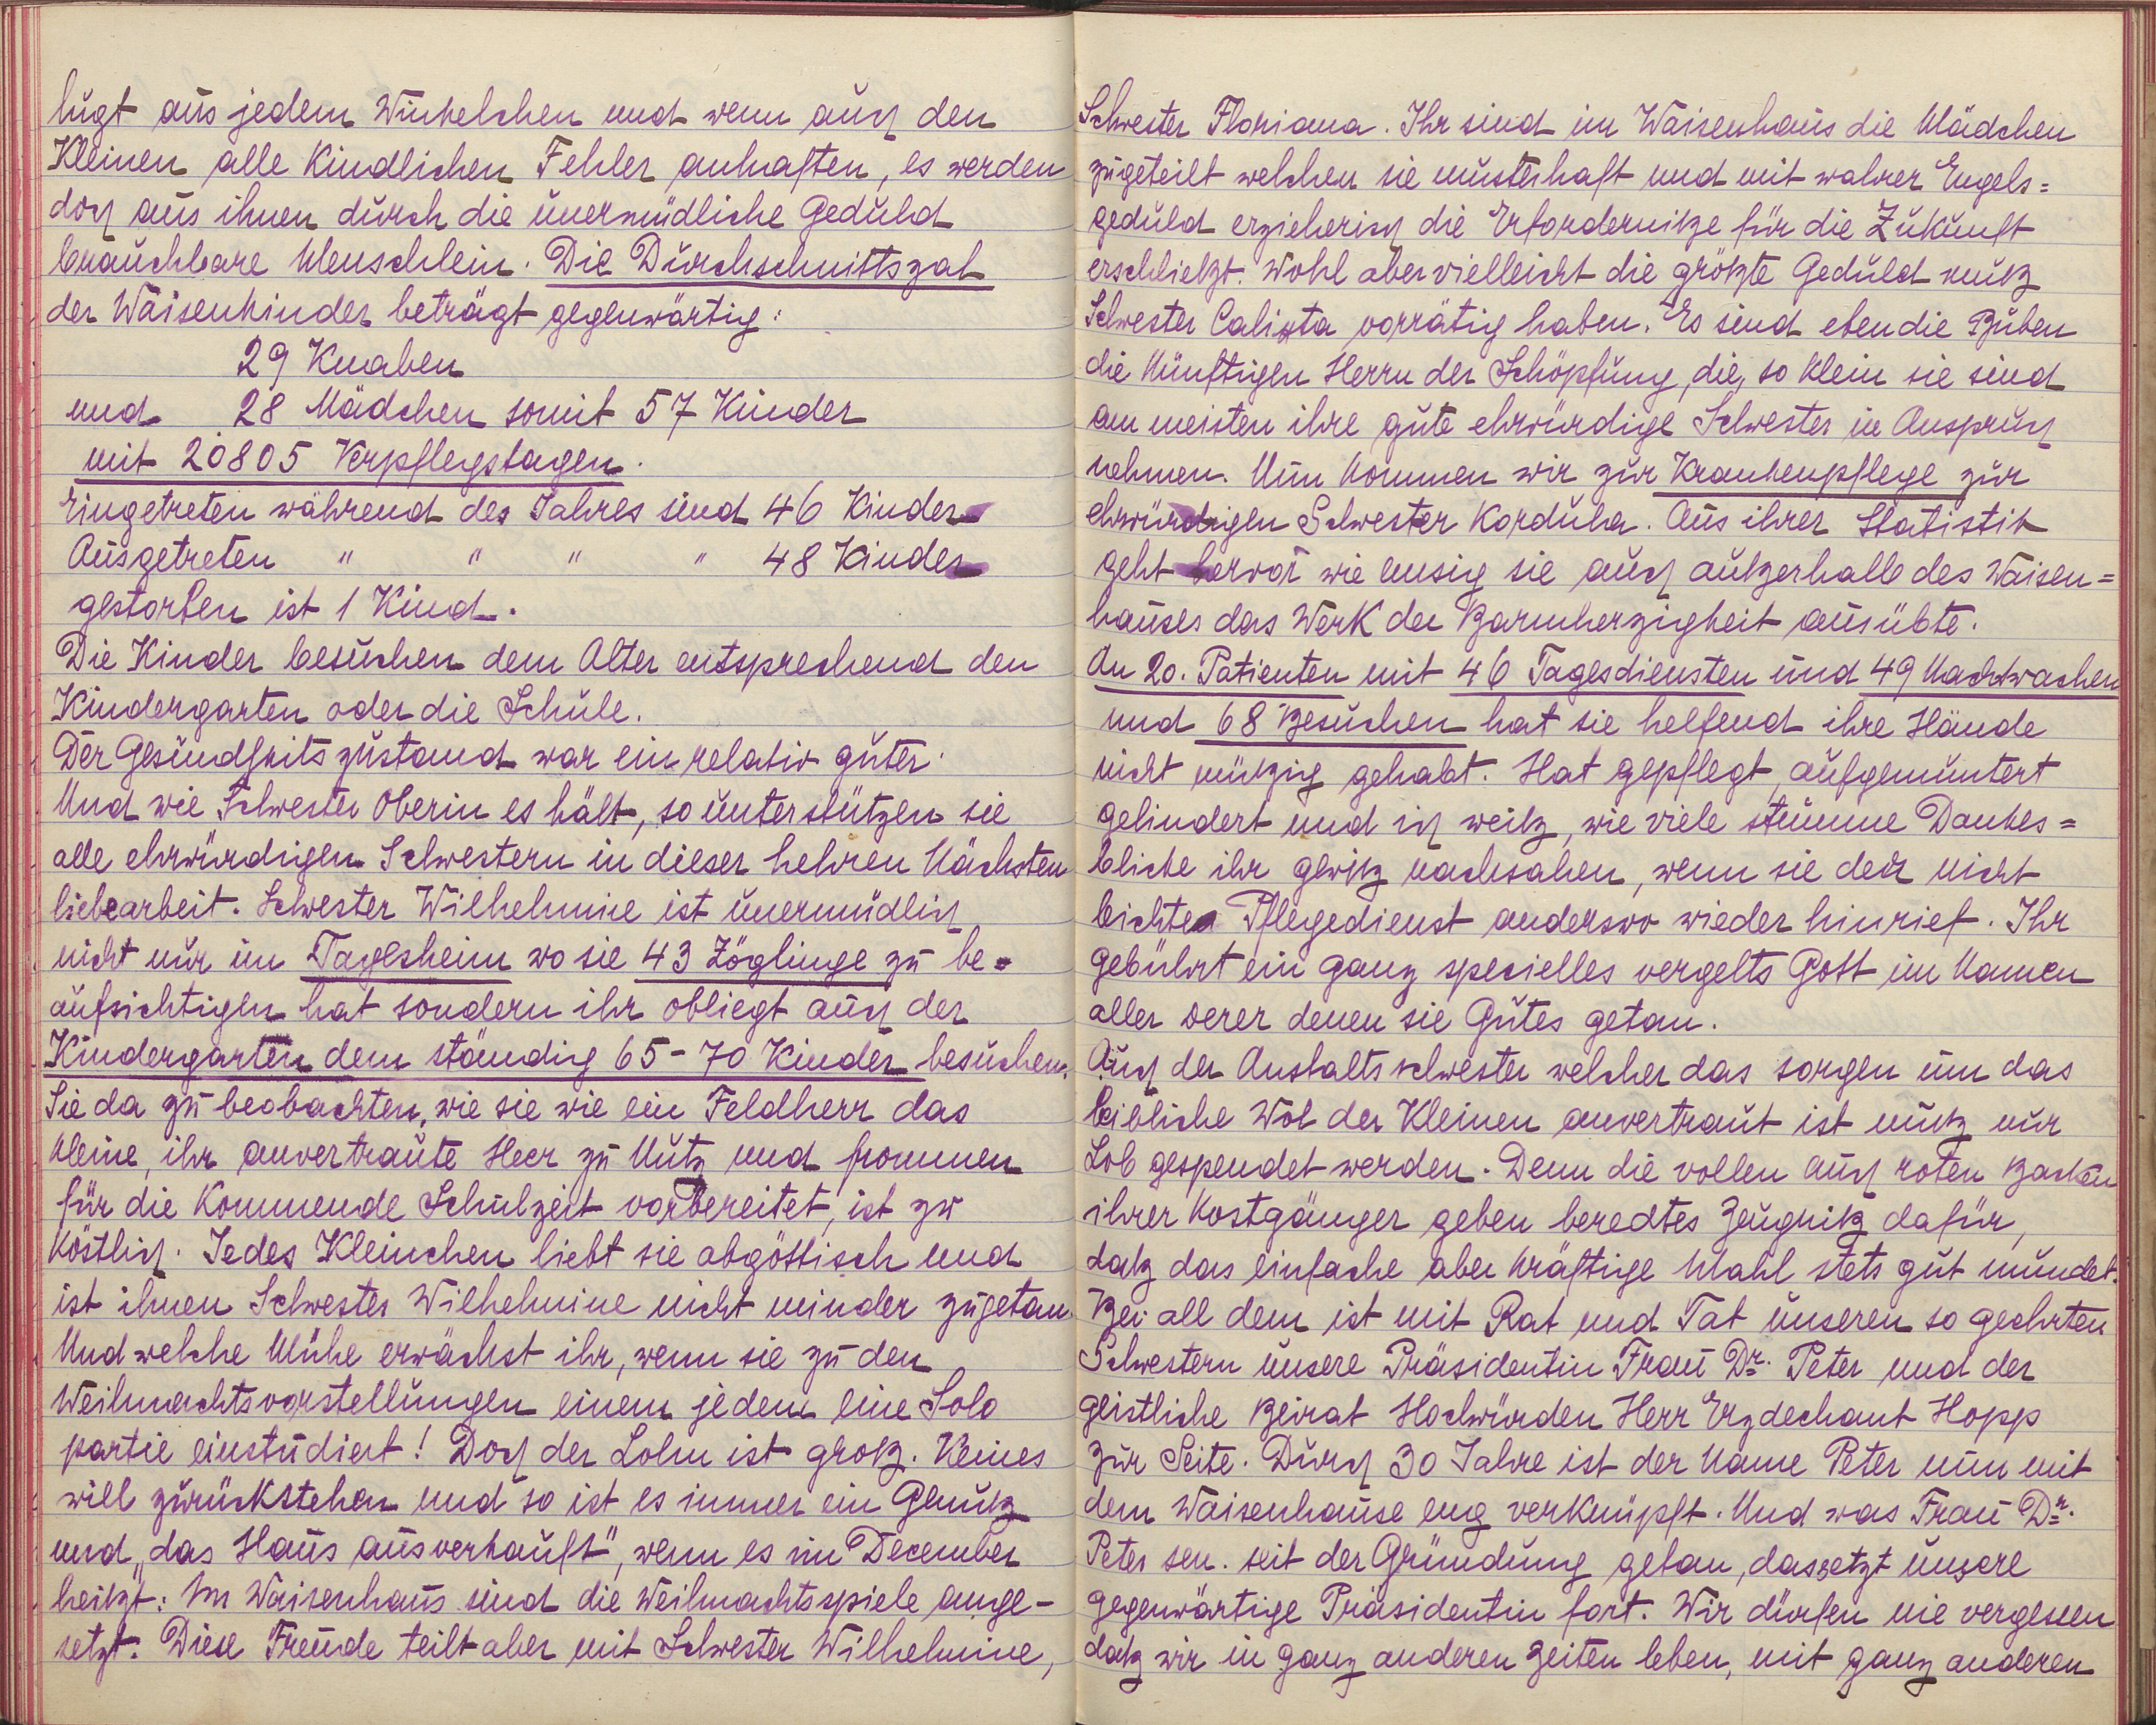 lugt aus jedem Winkelchen und wenn auch den
Kleinen alle kindlichen Fehler anhaften, es werden
doch aus ihnen durch die unermüdliche Geduld
brauchbare Menschlein. Die Durchschnittszal
der Waisenkinder beträgt gegenwärtig:
29 Knaben
und 28 Mädchen somit 57 Kinder
mit 20805 Verpflegstagen.
Eingetreten während des Jahres sind 46 Kinder
Ausgetreten " " " " 48 Kinder
gestorben ist 1 Kind.
Die Kinder besuchen dem Alter entsprechend den
Kindergarten oder die Schule.
Der Gesundheitszustand war ein relativ guter.
Und wie Schwester Oberin es hält, so unterstützen sie
alle ehrwürdigen Schwestern in dieser hehren Nächsten
liebearbeit. Schwester Wilhelmine ist unermüdlich
nicht nur im Tagesheim wo sie 43 Zöglinge zu be=
aufsichtigen hat sondern ihr obliegt auch der
Kindergarten dem ständig 65-70 Kinder besuchen.
Sie da zu beobachten, wie sie wie ein Feldherr das
kleine, ihr anvertraute Heer zu Nutz und frommen
für die kommende Schulzeit vorbereitet, ist zu
köstlich. Jedes Kleinchen liebt sie abgöttisch und
ist ihnen Schwester Wilhelmine nicht minder zugetan.
Und welche Mühe erwächst ihr, wenn sie zu den
Weihnachtsvorstellungen einem jedem eine Solo
partie einstudiert! Doch der Lohn ist groß. Keines
will zurückstehen und so ist es immer ein Genuß
und "das Haus ausverkauft", wenn es im December
heißt: Im Waisenhaus sind die Weihnachtsspiele ange-
setzt. Diese Freude teilt aber mit Schwester Wilhelmine,
Schwester Floriana. Ihr sind im Waisenhaus die Mädchen
zugeteilt welchen sie musterhaft und mit wahrer Engels=
geduld erzieherisch die Erforderniße für die Zukunft
erschließt. Wohl aber vielleicht die größte Geduld muß
Schwester Calixta vorrätig haben. Es sind eben die Buben
die künftigen Herrn der Schöpfung, die, so klein sie sind
am meisten ihre gute ehrwürdige Schwester in Anspruch
nehmen. Nun kommen wir zur Krankenpflege zur
ehrwürdigen Schwester Kordula. Aus ihrer Statistik
geht hervor wie emsig sie auch außerhalb des Waisen=
hauses das Werk der Barmherzigkeit ausübte.
An 20. Patienten mit 46 Tagesdiensten und 49 Nachtwachen
und 68 Besuchen hat sie helfend ihre Hände
nicht müßig gehabt. Hat gepflegt, aufgemuntert
gelindert und ich weiß, wie viele stumme Dankes=
blicke ihr gewiß nachsahen, wenn sie der nicht
leichte Pflegedienst anderswo wieder hinrief. Ihr
gebührt ein ganz specielles vergelts Gott im Namen
aller derer denen sie Gutes getan.
Auch der Anstaltsschwester welcher das sorgen um das
leibliche Wol der Kleinen anvertraut ist muß nur
Lob gespendet werden. Denn die vollen auch roten Backen
ihrer Kostgänger geben beredtes Zeugniß dafür,
daß das einfache aber kräftige Mahl stets gut mundet.
Bei all dem ist mit Rat und Tat unseren so geehrten
Schwestern unsere Präsidentin Frau Dr. Peter und der
geistliche Beirat Hochwürden Herr Erzdechant Hopp
zur Seite. Durch 30 Jahre ist der Name Peter nun mit
dem Waisenhause eng verknüpft. Und was Frau Dr.
Peter sen. seit der Gründung getan, das setzt unsere
gegenwärtige Präsidentin fort. Wir dürfen nie vergessen
daß wir in ganz anderen Zeiten leben, mit ganz anderen